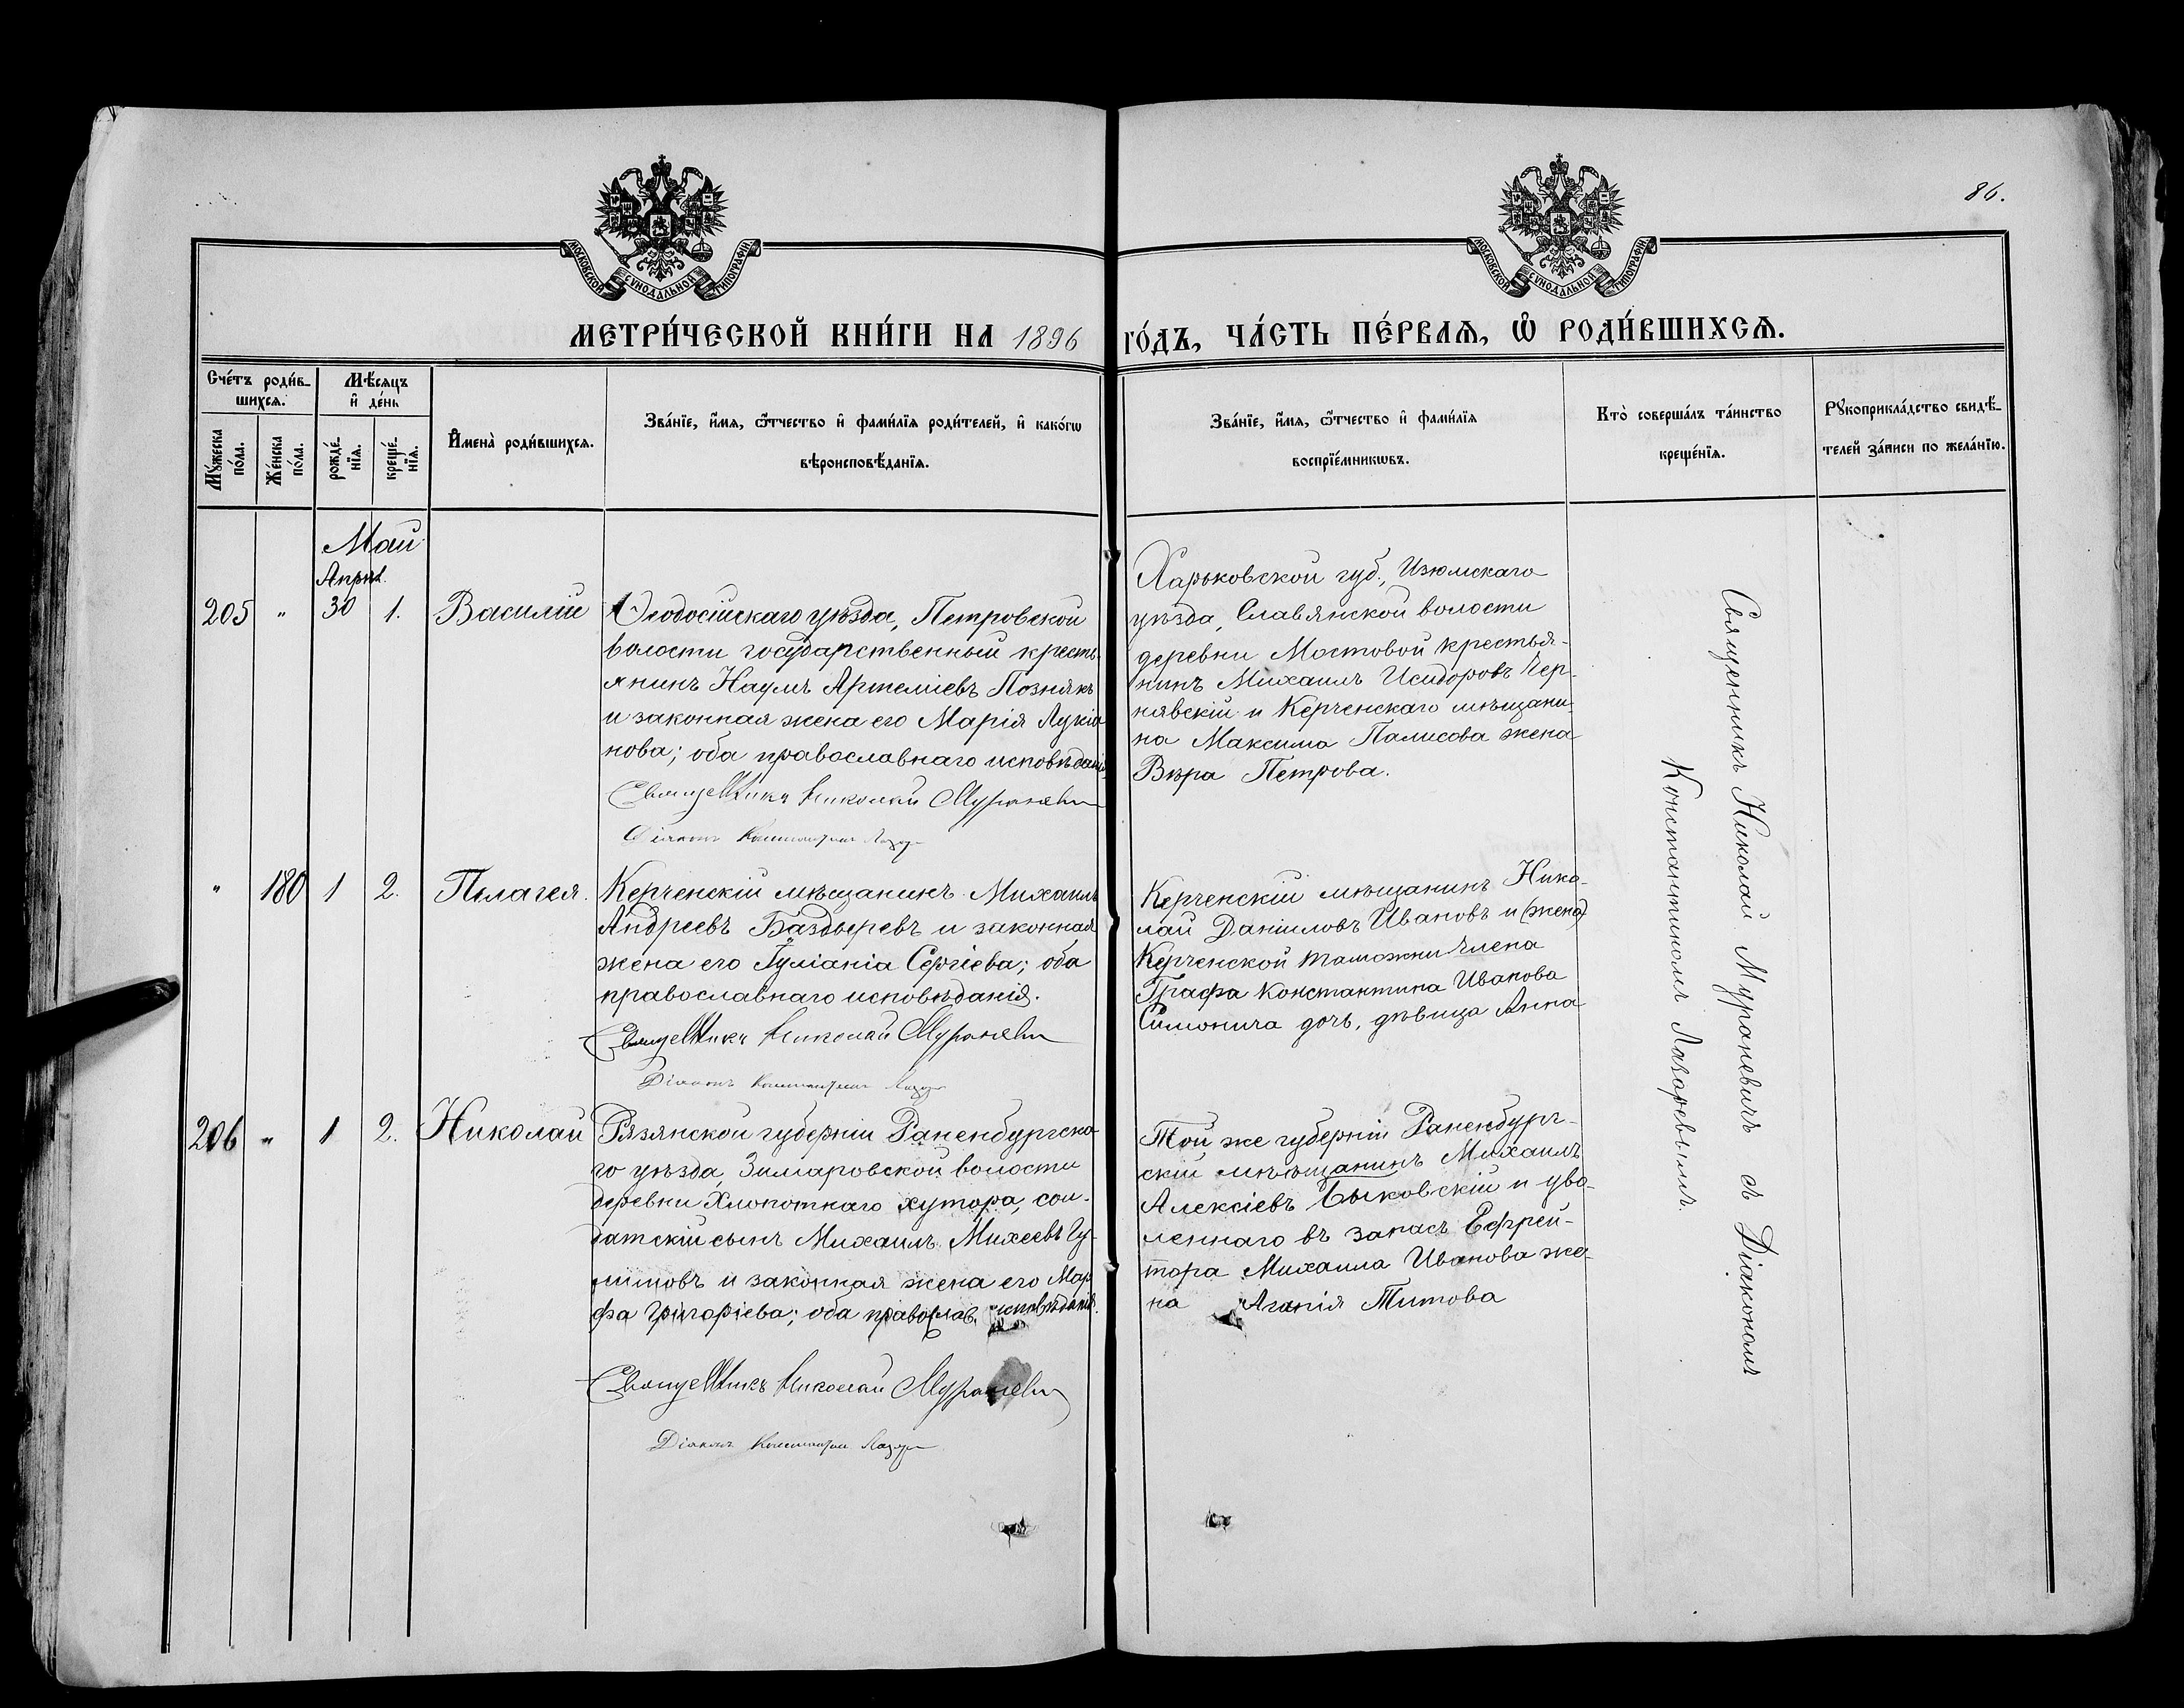 86.
МОСКОВСКОЙ СѴНОДАЛЬНОЙ ТИПОГРАФІИ
МОСКОВСКОЙ СѴНОДАЛЬНОЙ ТИПОГРАФІИ
МЕТРИ́ЧЕСКОЙ КНИ́ГИ НА 1896 ГО́ДЪ, ЧА́СТЬ ПЕ́РВАЯ, Ѽ РОДИ́ВШИХСЯ.
Сче́тъ роди́в-
шихся.
Мѣ́сяцъ
и҆ де́нь
Му́жеска
по́ла.
Же́нска
по́ла.
рожде́-
нїя.
креще́-
нїя.
И҆мена̀ роди́вшихся.
Зва́нїе, и҆́мя, ѻ҆́тчество и҆ фами́лїя роди́телей, и҆ како́гѡ
вѣроисповѣ́данїя.
Зва́нїе, и҆́мя, ѻ҆́тчество и҆ фами́лїя
воспрїе́мникѡвъ.
Кто̀ соверша́лъ та́инство
креще́нїя.
Рꙋкоприкла́дство свидѣ́-
телей за́писи по жела́нїю.
Май
Април.
205 " 30 1. Василій
Ѳеодосійскаго уѣзда, Петровской
волости государственный кресть-
янинъ Наумъ Артеміевъ Познякъ
и законная жена его Марія Лукіа
нова; оба православнаго исповѣданія
Священникъ Николай Мураневичъ
Діаконъ Константинъ Лазарев
Харьковской губ., Изюмскаго
уѣзда, Славянской волости
деревни Мостовой крестья-
нинъ Михаилъ Исидоровъ Чер-
нявскій и Керченскаго мѣщани-
на Максима Палисова жена
Вѣра Петрова.
" 180 1 2. Пелагея.
Керченскій мѣщанинъ Михаилъ
Андреевъ Баздыревъ и законная
жена его Іуліанія Сергіева; оба
православнаго исповѣданія.
Священникъ Николай Мураневичъ
Діаконъ Константинъ Лазарев
Керченскій мѣщанинъ Нико-
лай Даніиловъ Ивановъ и (жена)
Керченской таможни члена
Графа Константина Иванова
Симонича дочь, дѣвица Анна
206 " 1 2. Николай
Рязянской губерніи Раненбургска-
го уѣзда, Зимаровской волости
деревни Хлопотнаго хутора, сол-
датскій сынъ Михаилъ Михеевъ
и законная жена его Мар
фа Григоріева; оба православ. исповѣданія.
Священникъ Николай Мураневичъ
Діаконъ Константинъ Лазарев
Той же губерніи Раненбург-
скій мѣщанинъ Михаилъ
Алексіевъ Быковскій и уво-
леннаго въ запасъ Ефрей-
тора Михаила Иванова же-
на Аганія Титова
Священникъ Николай Мураневичъ съ Діакономъ
Константиномъ Лазаревымъ.